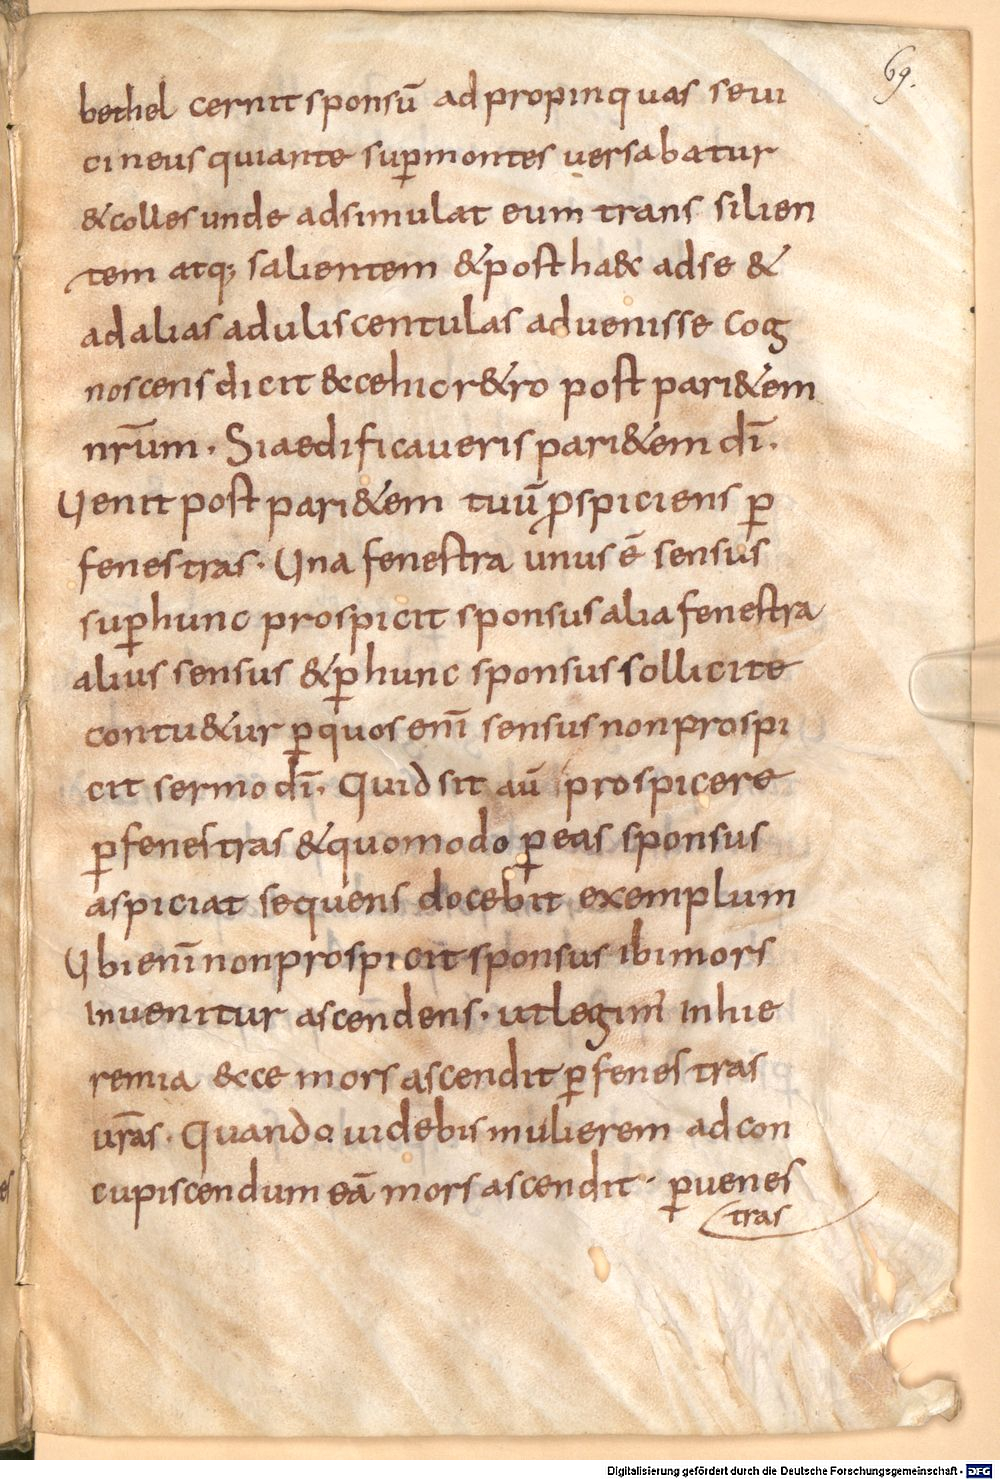 69.
bethel cernit sponsū ad propinquas se ui
ci neus qui ante sup̲ montes uersabatur
& colles unde adsimulat eum trans silien
tem atq; salientem & post ha& ad se &
ad alias aduliscentulas aduenisse cog
noscens dicit &ce hic r&ro post pari&em
nr̄um. Si aedificaueris pari&em dī.
Uenit post pari&em tuū ꝓspiciens ꝑ
fenestras. Una fenestra unus ē sensus
suꝑ hunc prospicit sponsus alia fenestra
alius sensus & ꝑ hunc sponsus sollicite
contu&ur ꝑ quos enī sensus non prospi
cit sermo dī. Quid sit aū prospicere
ꝑ fenestras & quomodo ꝑ eas sponsus
aspiciat sequens docebit exemplum
Ubi enī non prospicit sponsus ibi mors
inuenitur ascendens. ut legim' in hie
remia &ce mors ascendit ꝑ fenestras
ur̄as. Quando uidebis mulierem ad con
cupiscendum eā mors ascendit. ꝑ uenes
tras
Digitalisierung gefördert durch die Deutsche Forschungsgemeinschaft - DFG